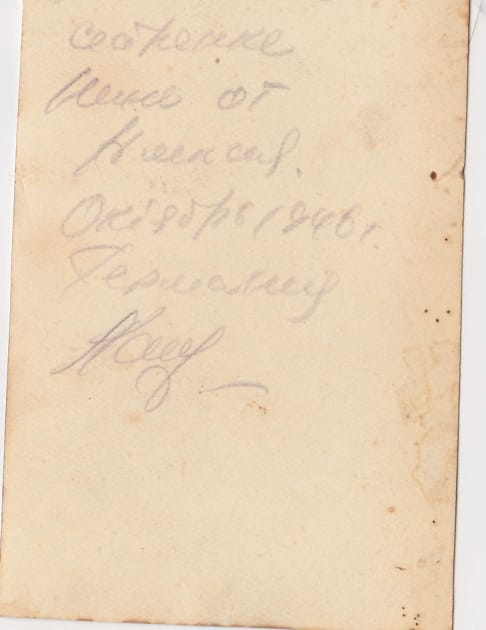 сестренке
Нине от
Алексея.
Октябрь 1946 г.
Германия